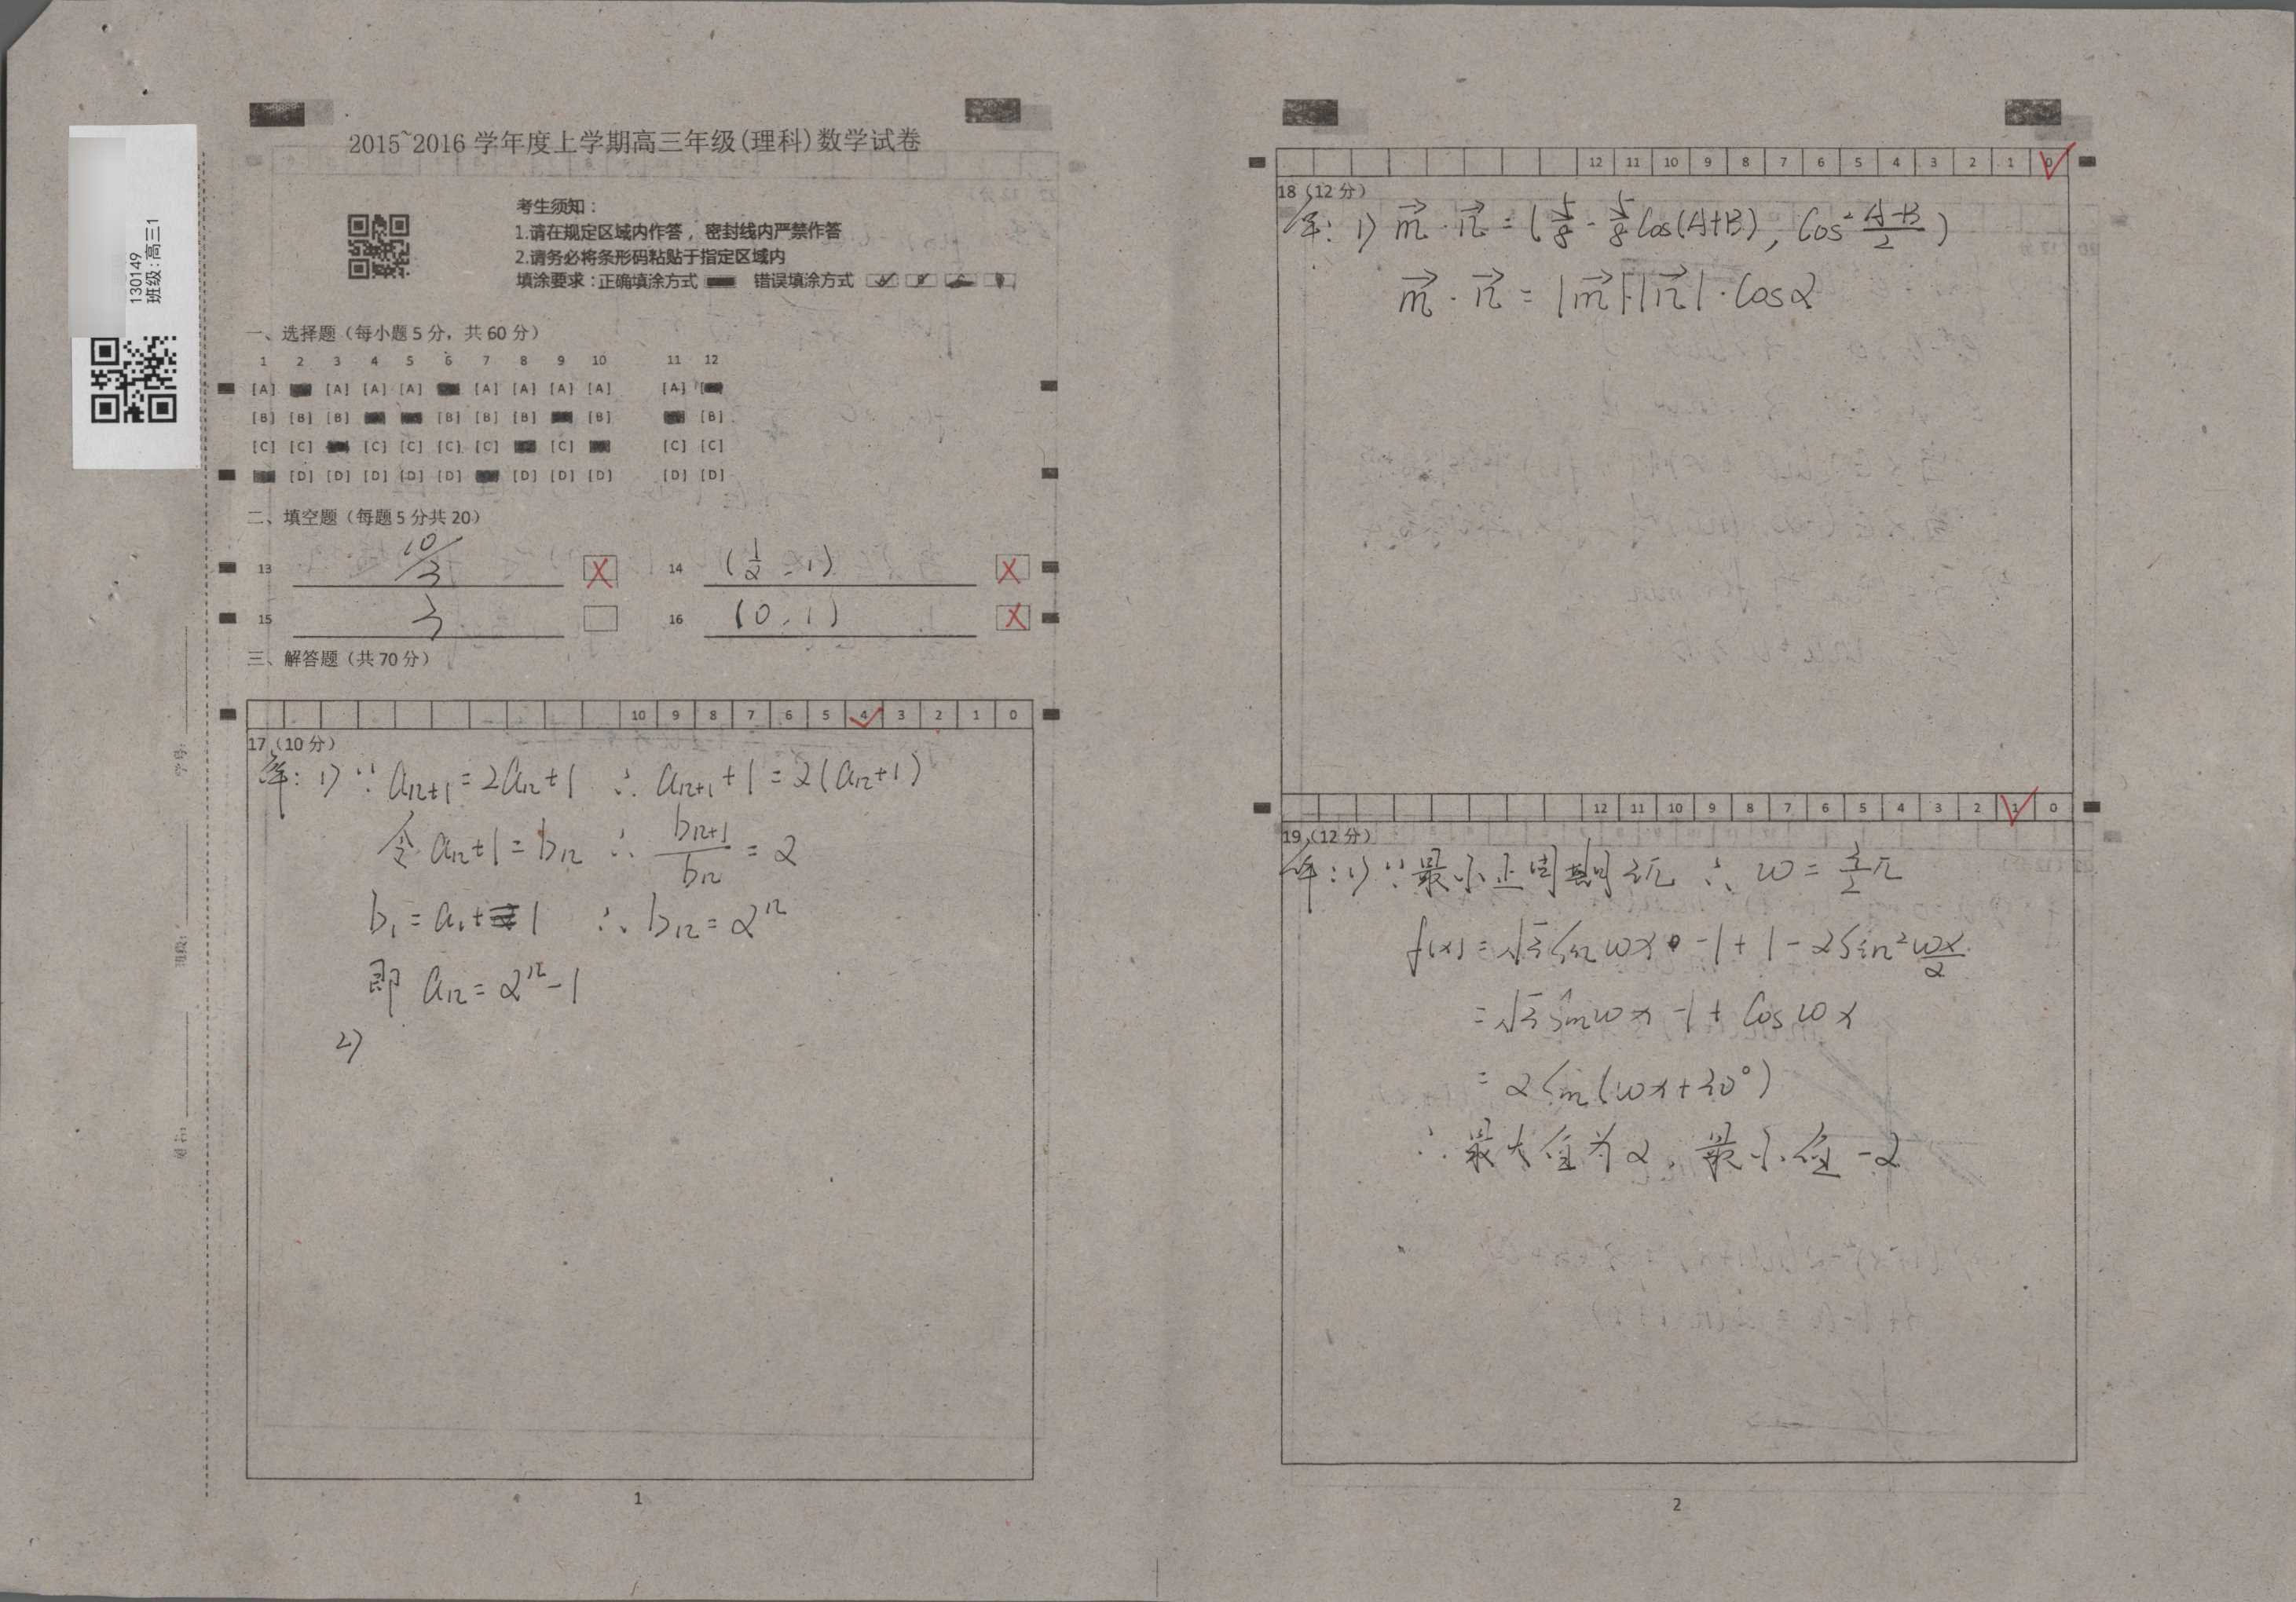 2015~2016 学年度上学期高三年级(理科)数学试卷
130149
班级:高三1
考生须知:
1.请在规定区域内作答,密封线内严禁作答
2.请务必将条形码粘贴于指定区域内
填涂要求:正确填涂方式 错误填涂方式
一、选择题(每小题5分,共60分)
1 2 3 4 5 6 7 8 9 10 11 12
[A] [A] [A] [A] [A] [A] [A] [A] [A]
[B] [B] [B] [B] [B] [B] [B] [B]
[C] [C] [C] [C] [C] [C] [C] [C] [C]
[D] [D] [D] [D] [D] [D] [D] [D] [D] [D]
二、填空题(每题5分共20)
13 10/3 X 14 (1/2, 1) X
15 3 16 (0, 1) X
三、解答题(共70分)
10 9 8 7 6 5 4 3 2 1 0
17(10分)
解: 1) ∵ aₙ₊₁=2aₙ+1 ∴ aₙ₊₁+1=2(aₙ+1)
令 aₙ+1=bₙ ∴ bₙ₊₁/bₙ = 2
b₁=a₁+1 ∴ bₙ=2ⁿ
即 aₙ=2ⁿ-1
2)
学号:
班级:
姓名:
1
12 11 10 9 8 7 6 5 4 3 2 1 0
18(12分)
解: 1) m⃗·n⃗=(5/8-5/8Cos(A+B), Cos²(A-B)/2)
m⃗·n⃗=|m⃗|·|n⃗|·Cosα
12 11 10 9 8 7 6 5 4 3 2 1 0
19(12分)
解: 1) ∵最小正周期3π ∴ω=3/2π
f(x)=√3Sinωx-1+1-2Sin²ωx/2
=√3Sinωx-1+Cosωx
=2Sin(ωx+30°)
∴最大值为2,最小值-2
2